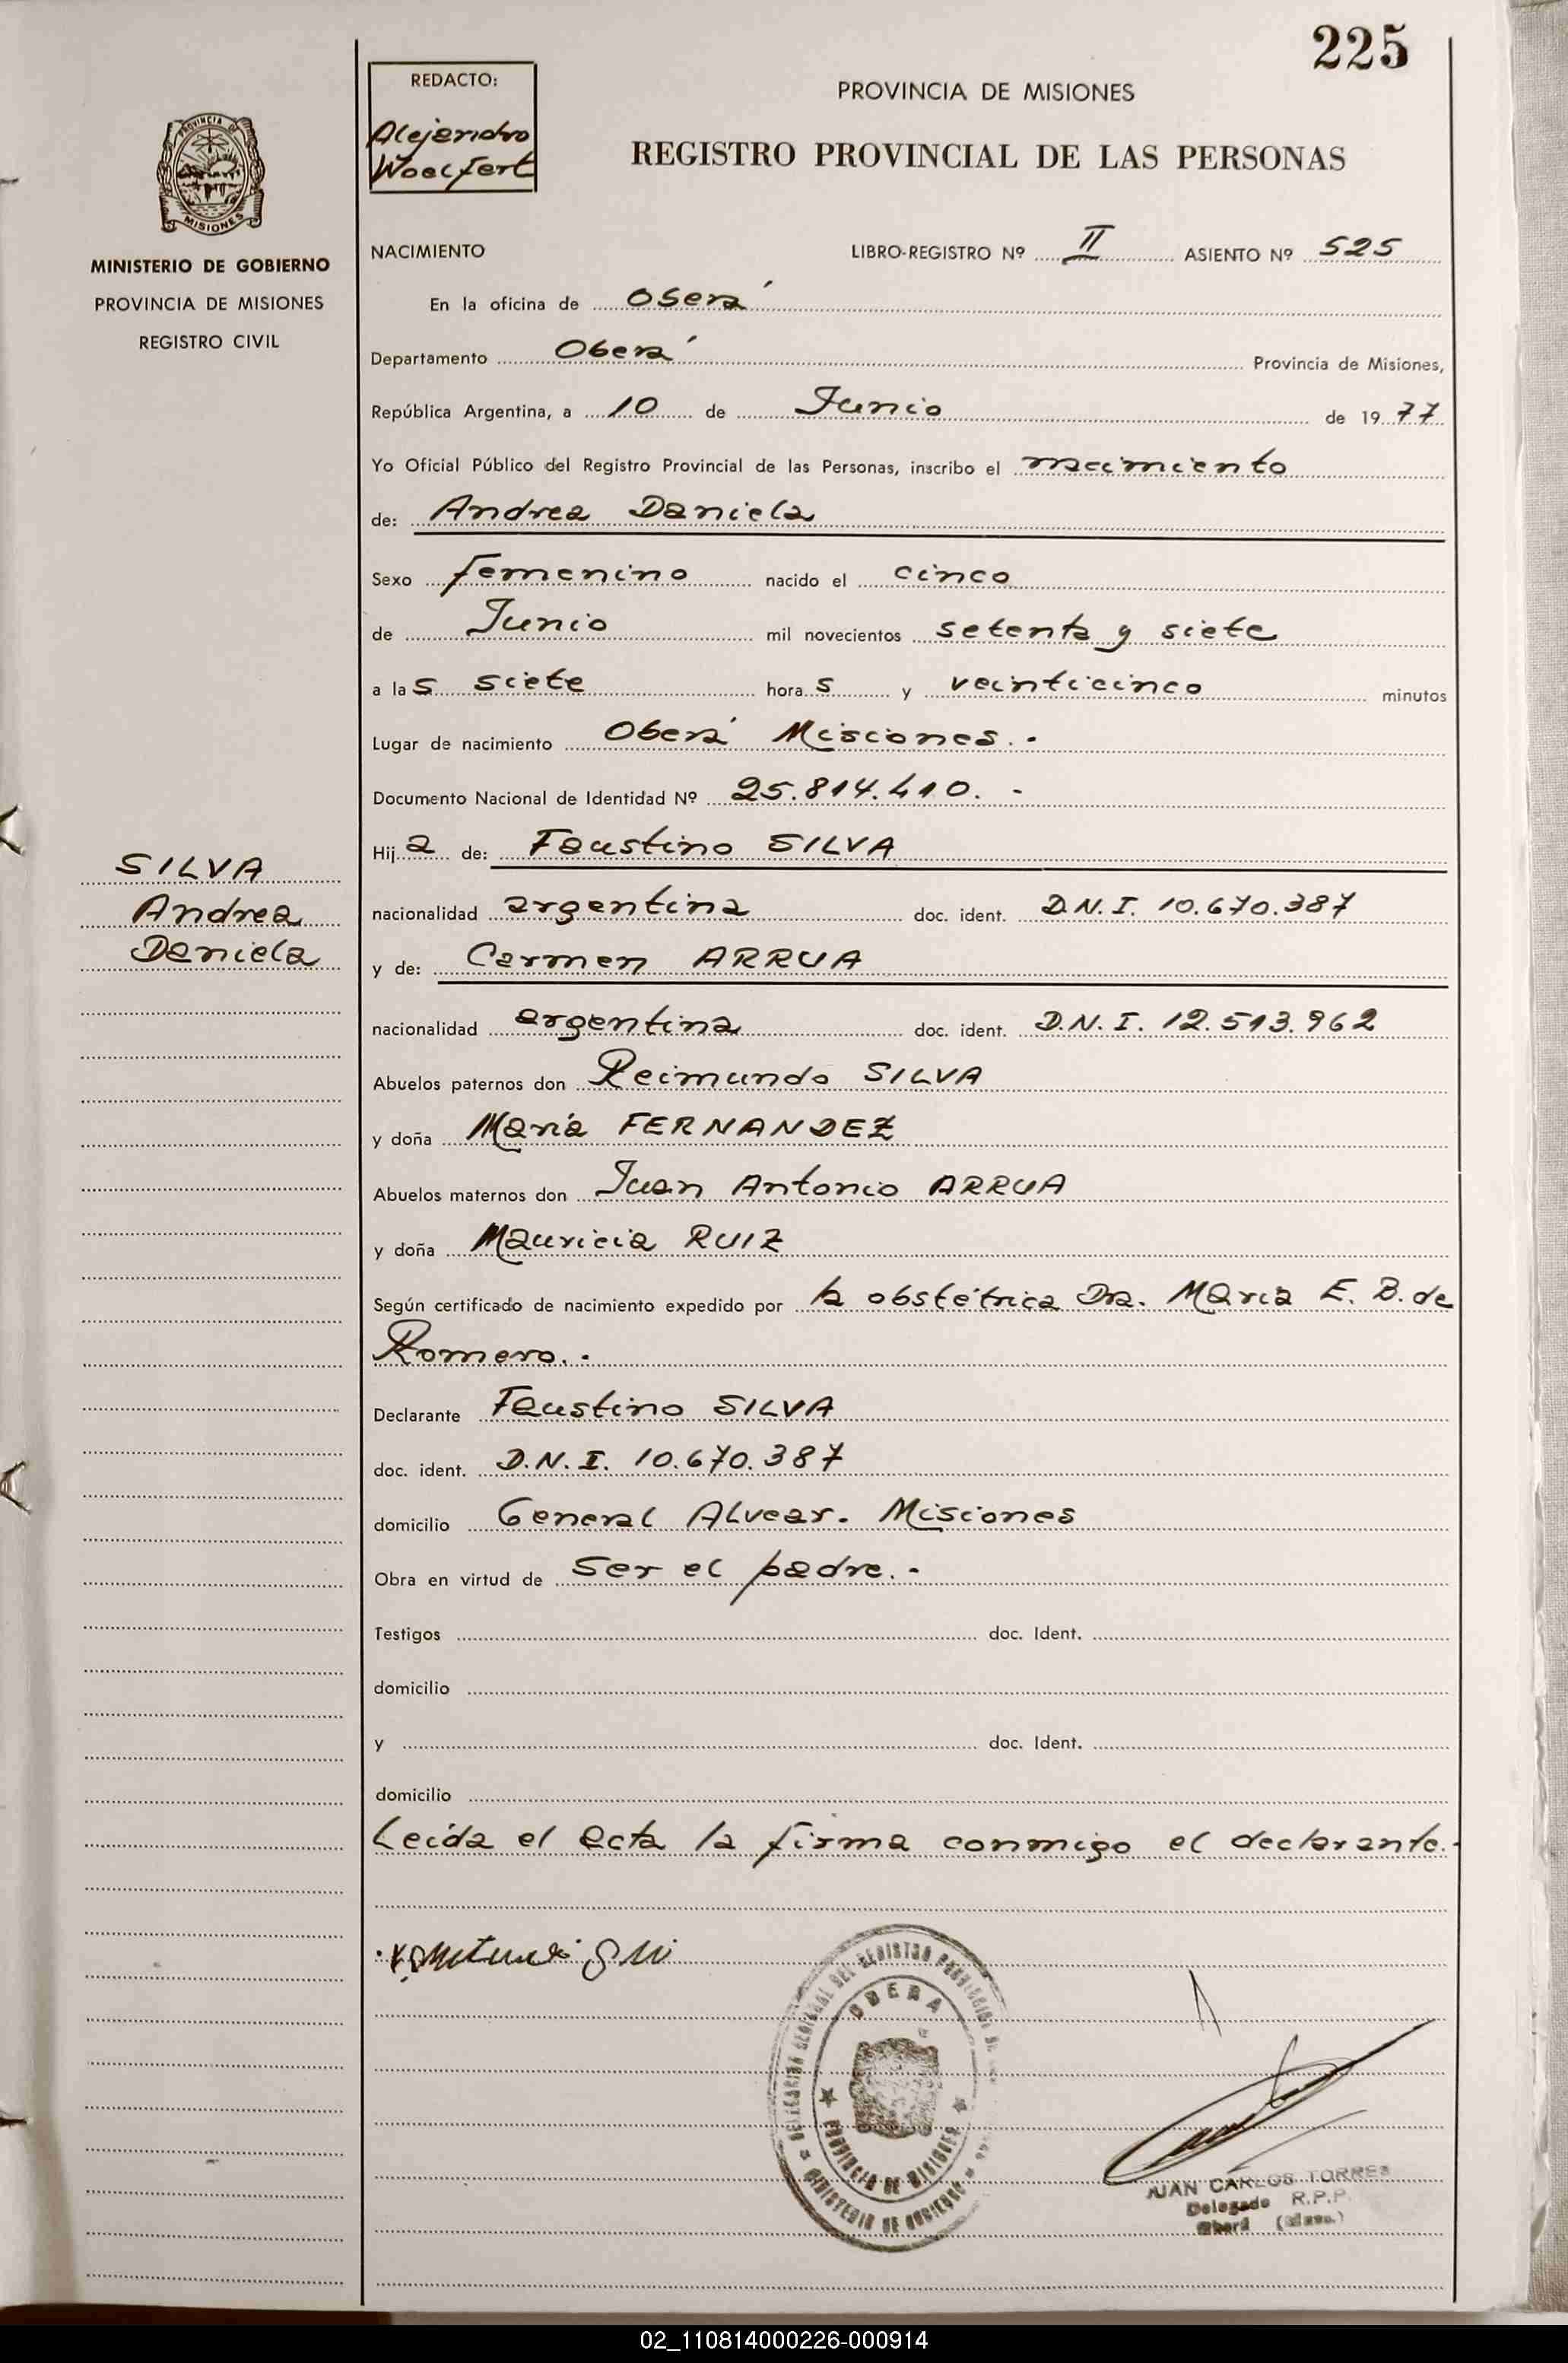 225
REDACTO:
Alejandro
Woelfert
PROVINCIA DE MISIONES
REGISTRO PROVINCIAL DE LAS PERSONAS
PROVINCIA DE
MISIONES
MINISTERIO DE GOBIERNO
PROVINCIA DE MISIONES
REGISTRO CIVIL
NACIMIENTO LIBRO-REGISTRO Nº II ASIENTO Nº 525
En la oficina de Oberá
Departamento Oberá Provincia de Misiones,
República Argentina, a 10 de Junio de 1977
Yo Oficial Público del Registro Provincial de las Personas, inscribo el nacimiento
de: Andrea Daniela
Sexo femenino nacido el cinco
de Junio mil novecientos setenta y siete
a las siete horas y veinticinco minutos
Lugar de nacimiento Oberá Misiones.-
Documento Nacional de Identidad Nº 25.814.410.-
Hija de: Faustino SILVA
SILVA
Andrea
Daniela
nacionalidad argentina doc. ident. D.N.I. 10.670.387
y de: Carmen ARRUA
nacionalidad argentina doc. ident. D.N.I. 12.513.962
Abuelos paternos don Reimundo SILVA
y doña María FERNANDEZ
Abuelos maternos don Juan Antonio ARRUA
y doña Mauricia RUIZ
Según certificado de nacimiento expedido por la obstétrica Dra. María E. B. de
Romero.-
Declarante Faustino SILVA
doc. ident. D.N.I. 10.670.387
domicilio General Alvear. Misiones
Obra en virtud de ser el padre.-
Testigos doc. Ident.
domicilio
y doc. Ident.
domicilio
Leída el acta la firma conmigo el declarante.-
OBERA
PROVINCIA DE MISIONES
MINISTERIO DE GOBIERNO
JUAN CARLOS TORRES
Delegado R.P.P.
Oberá (Mnes.)
02_110814000226-000914